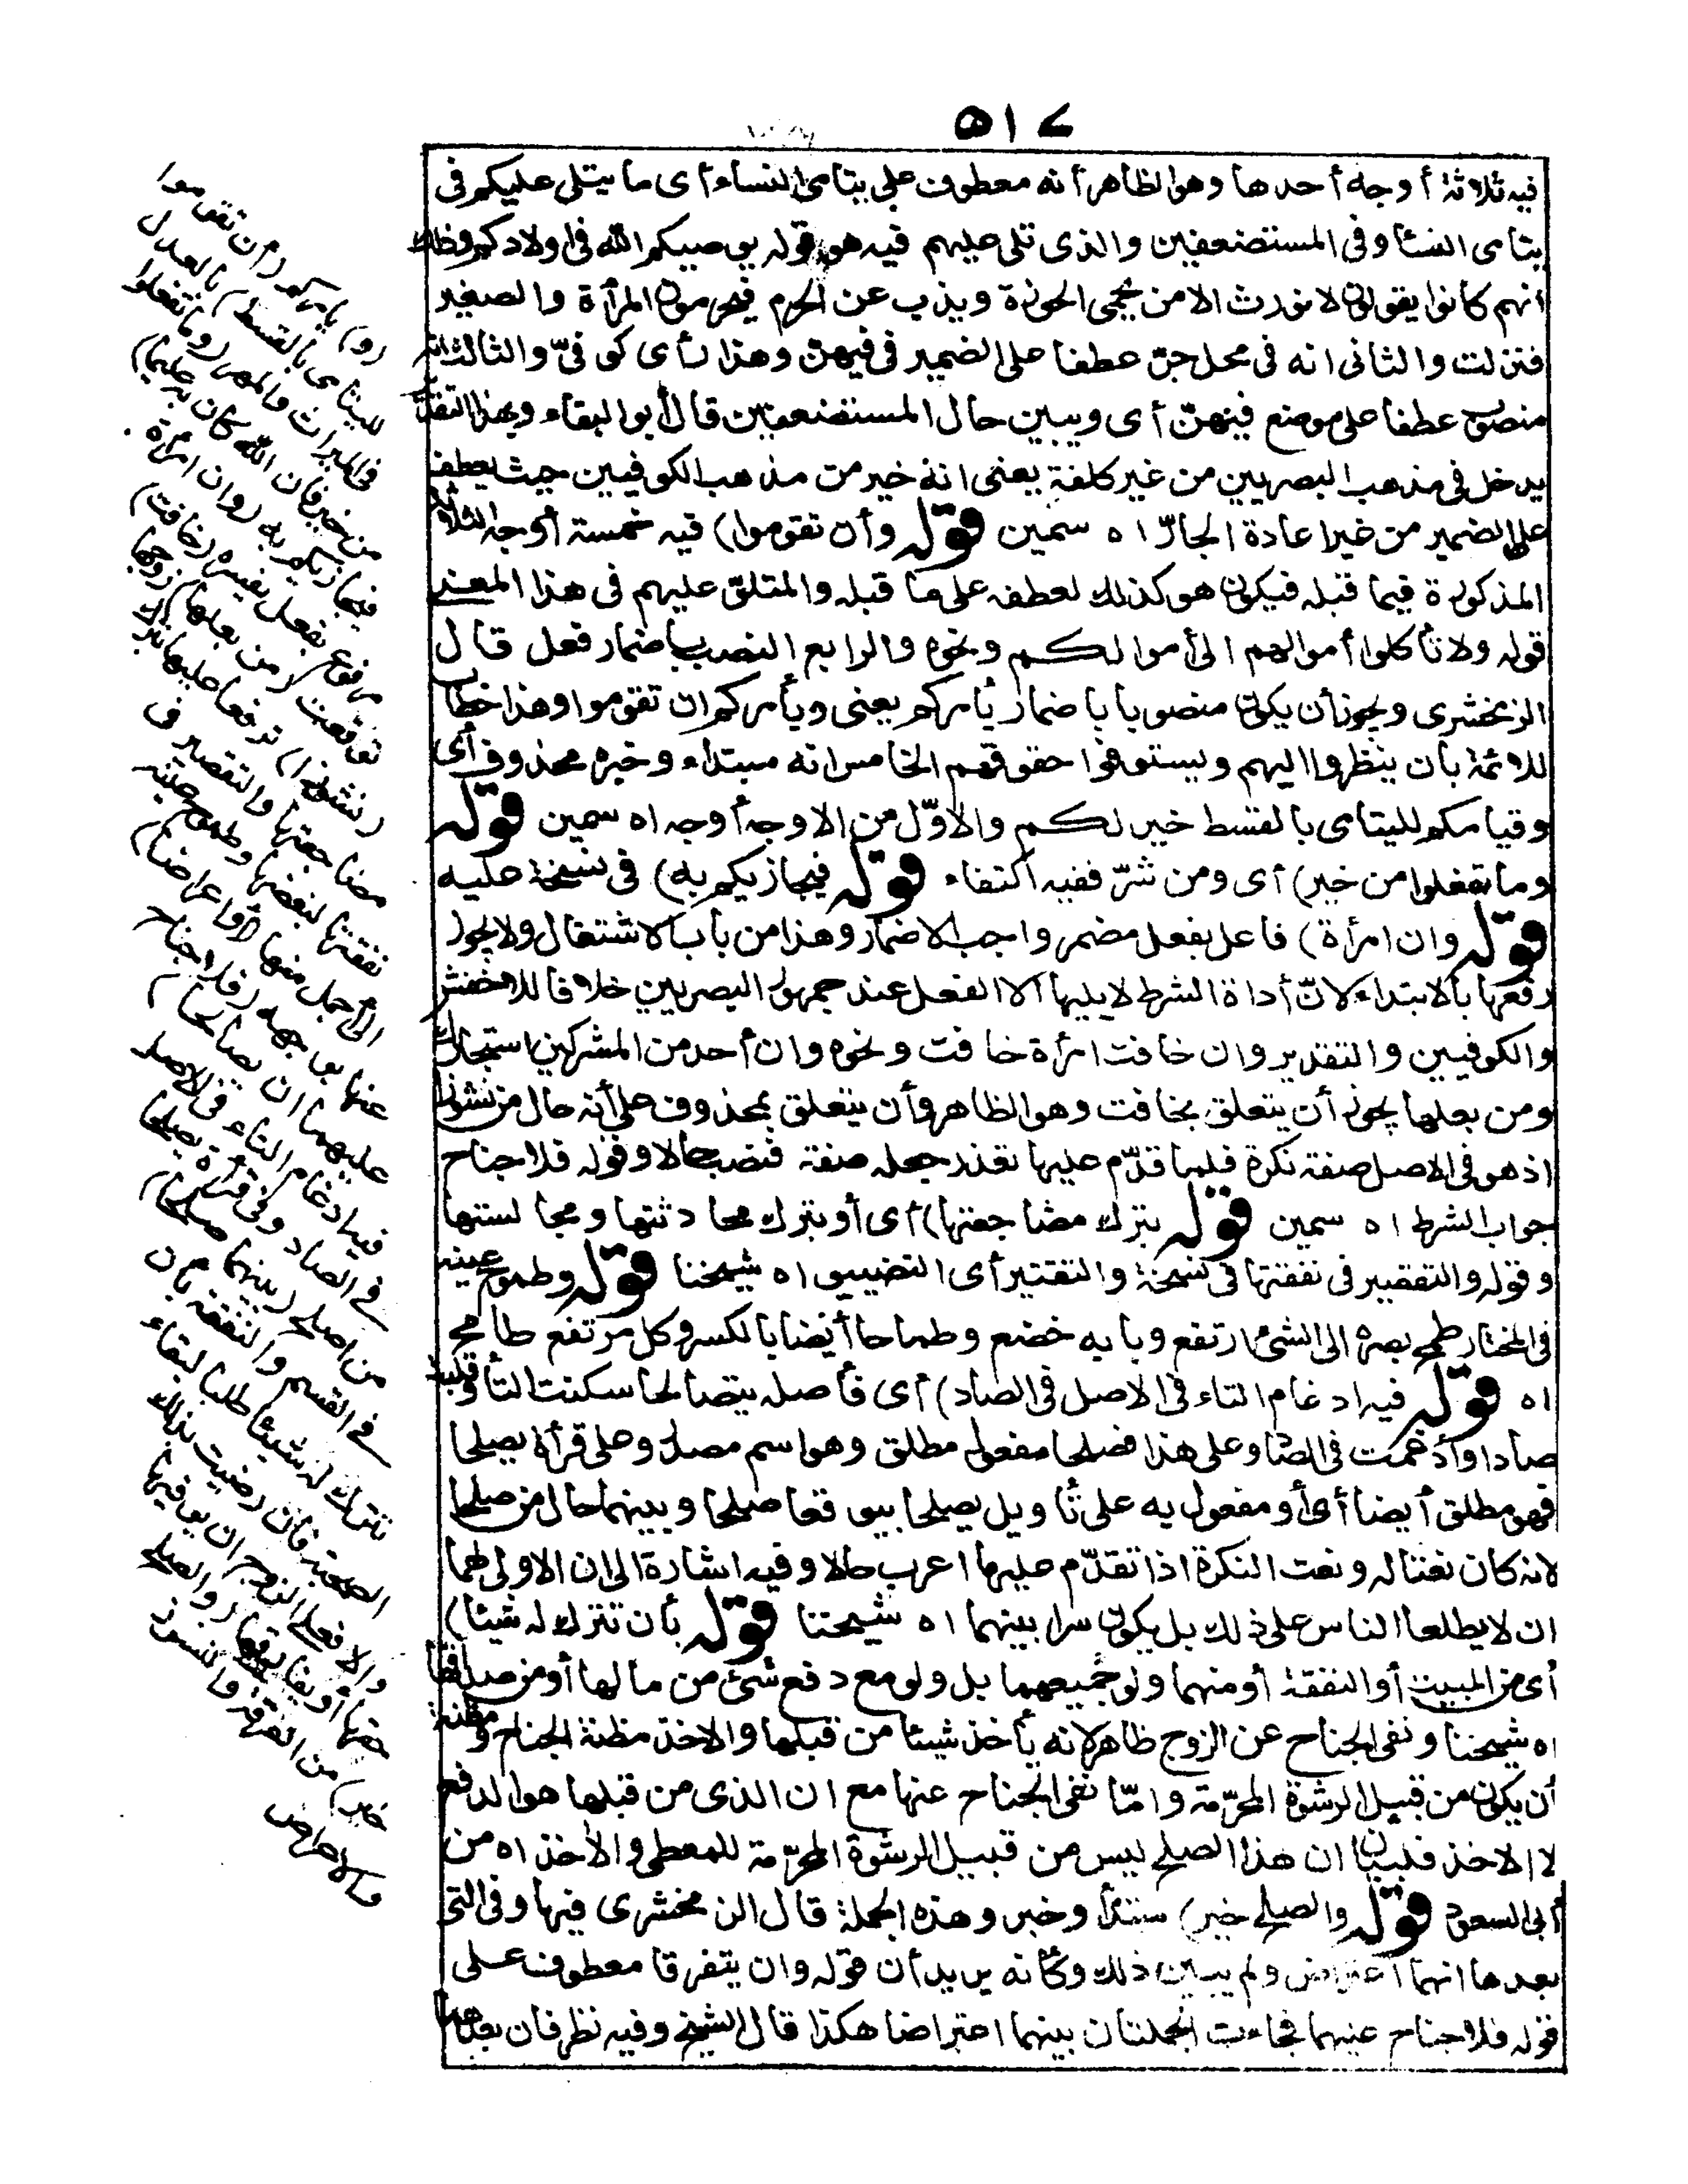 ٥١٧
فيه ثلاثة أوجه أحدها وهو الظاهر أنه معطوف على يتامى النساء أى ما يتلى عليكم فى
يتامى النسا وفى المستضعفين والذى تلى عليهم فيه هو قوله يوصيكم الله فى اولادكم وذلك
انهم كانوا يقولون لا نورث الا من يحمى الحوزة ويذب عن الحرم فيحرمون المرأة والصغير
فنزلت والثانى انه فى محل جرّ عطفا على الضمير فى فيهنّ وهذا رأى كوفىّ والثالث انه
منصوب عطفا على موضع فيهنّ أى ويبين حال المستضعفين قال أبو البقاء وبهذا التقدير
يدخل فى مذهب البصريين من غير كلفة يعنى انه خير من مذهب الكوفيين حيث يعطف
على الضمير من غير اعادة الجارّ اه سمين قوله وأن تقوموا) فيه خمسة أوجه الثلاثة
المذكورة فيما قبله فيكون هو كذلك لعطفه على ما قبله والمتلوّ عليهم فى هذا المعنى
قوله ولا تأكلوا أموالهم الى أموالكم ونحوه والرابع النصب باضمار فعل قال
الزمخشرى ويجوز أن يكون منصوبا باضمار يأمركم بمعنى ويأمركم ان تقوموا وهذا خطاب
للائمة بأن ينظروا اليهم ويستوفوا حقوقهم الخامس انه مبتداء وخبره محذوف أى
وقيامكم لليتامى بالقسط خير لكم والاوّل من الاوجه أوجه اه سمين قوله
وما تفعلوا من خير) أى ومن شرّ ففيه اكتفاء قوله فيجازيكم به) فى نسخة عليه
قوله وان امرأة) فاعل بفعل مضمر واجب الاضمار وهذا من باب الاشتغال ولا يجوز
رفعها بالابتداء لانّ أداة الشرط لا يليها الا الفعل عند جمهور البصريين خلافا للاخفش
والكوفيين والتقدير وان خافت امرأة خافت ونحوه وان أحد من المشركين استجارك
ومن بعلها يجوز أن يتعلق بخافت وهو الظاهر وأن يتعلق بمحذوف على أنه حال من نشوزا
اذ هو فى الاصل صفة نكرة فلما قدّم عليها تعذر جعله صفة فنصب حالا وقوله فلا جناح
جواب الشرط اه سمين قوله بترك مضاجعتها) أى أو بترك محادثتها ومجالستها
وقوله والتقصير فى نفقتها فى نسخة والتقتير أى التضييق اه شيخنا قوله وطموح عينه
فى المختار طمح بصره الى الشئ ارتفع وبابه خضع وطماحا أيضا بالكسر وكل مرتفع طامح
اه قوله فيه ادغام التاء فى الاصل فى الصاد) أى فأصله يتصالحا سكنت التأ وقلبت
صادا وأدغمت فى الصاد وعلى هذا فصلحا مفعول مطلق وهو اسم مصدر وعلى قرأة يصلحا
فهو مطلق أيضا أى أو مفعول به على تأويل يصلحا بيوقعا صلحا وبينهما حال من صلحا
لانه كان نعتا له ونعت النكرة اذا تقدّم عليها اعرب حالا وفيه اشارة الى ان الاولى لهما
ان لا يطلعا الناس على ذلك بل يكون سرا بينهما اه شيخنا قوله بأن تترك له شيئا)
أى من المبيت أو النفقة أو منهما ولو جميعهما بل ولو مع دفع شئ من مالها أو من صداقها
اه شيخنا ونفى الجناح عن الزوج ظاهر لانه يأخذ شيئا من قبلها والاخذ مظنة الجناح ومظنة
أن يكون من قبيل الرشوة المحرّمة وامّا نفى الجناح عنها مع ان الذى من قبلها هو الدفع
لا الاخذ فلبيان ان هذا الصلح ليس من قبيل الرشوة المحرّمة للمعطى والأخذ اه من
أبى السعود قوله والصلح خير) مبتدأ وخبر وهذه الجملة قال الزمخشرى فيها وفى التى
بعدها انهما اعتراض ولم يبين ذلك وكأنه يريد أن قوله وان يتفرقا معطوف على
قوله فلا جناح عنهما فجاءت الجملتان بينهما اعتراضا هكذا قال الشيخ وفيه نظر فان بعدهما
(و) يأمركم (أن تقوموا
لليتامى بالقسط) بالعدل
فى الميراث والمهر (وما تفعلوا
من خير فان الله كان به عليما)
فيجازيكم به (وان امرأة)
مرفوع بفعل يفسره (خافت)
توقعت (من بعلها) زوجها
(نشوزا) ترفعا عليها بترك
مضاجعتها والتقصير فى
نفقتها لبغضها وطموح عينه
الى أجمل منها (أو اعراضا)
عنها بوجهه (فلا جناح
عليهما ان يصالحا)
فيه ادغام التاء فى الاصل
فى الصاد وفى قرأة يصلحا
من اصلح (بينهما صلحا)
فى القسم والنفقة بأن
تترك له شيئا طلبا لبقاء
الصحبة فان رضيت بذلك
والا فعلى الزوج ان يوفيها
حقها أو يفارقها (والصلح
خير) من الفرقة والنشوز
والاعراض